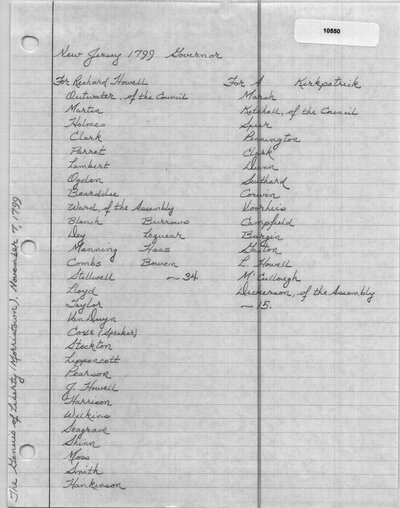 10550
New Jersey 1799 Governor
For Richard Howell
Outwater, of the Council
Martin
Holmes
Clark
Parret
Lambert
Ogden
Beardslee
Ward, of the Assembly
Blanch Burrows
Dey Leguear
Manning Haas
Combs Bowen
Stillwell – 34
Lloyd
Taylor
Van Duyn
Coxe (Speaker)
Stockton
Lippencott
Pearson
J. Howell
Harrison
Wilkins
Seagrave
Shinn
Moss
Smith
Hankinson
For A Kirkpatrik
Marsh
Kitchell, of the Council
Speer
Pennington
Clark
Dunn
Southard
Couven
Voorheis
Campfield
Burgin
Gaston
L. Howell
McCullough
Dickerson, of the Assembly
– 15.
The Genius of Liberty (Morristown), November 7, 1799